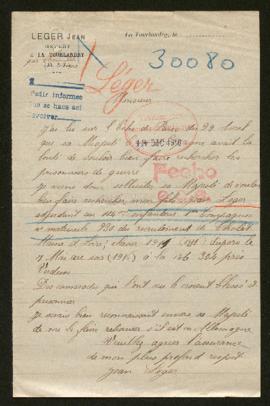 LEGER JEAN
A LA TOURLANDRY
La Tourlandry, le
30080
Léger
Pedir informes
Monsieur
J'ai lu sur l'Echo de Paris du 29 Avril
que sa Majesté
14 DIC 1916
bonté de vouloir bien faire rechercher les
prisonniers de guerre
Fecho
Je viens donc solliciter sa Majesté de vouloir
bien faire rechercher mon fils Leger
adjudant au 114 infanterie Compagnie
matricule 920 du recrutement de Cholet
Maine et Loire, classe disparu le
à la côte 304 près
Verdun
Des camarades qui l'ont vu le croient blessé et
prisonnier
Je serais bien reconnaissant envers sa Majesté
de me le faire retrouver s'il est en Allemagne
Veuillez agréer l'assurance
de mon plus profond respect
Jean Léger